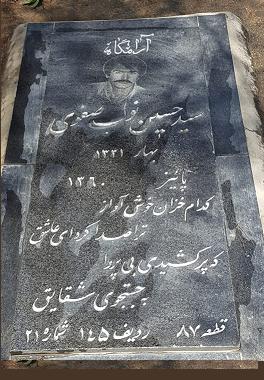 آرامگاه
سید حسین نواب صفوی
بهار ۱۳۳۱
پائیز ۱۳۶۰
کدام خزان خوش آواز
ترا صدا کرد ای عاشق
که پر کشیدی بی پروا
به جستجوی شقایق
قطعه ۸۷ ردیف ۱۴۵ شماره ۲۱